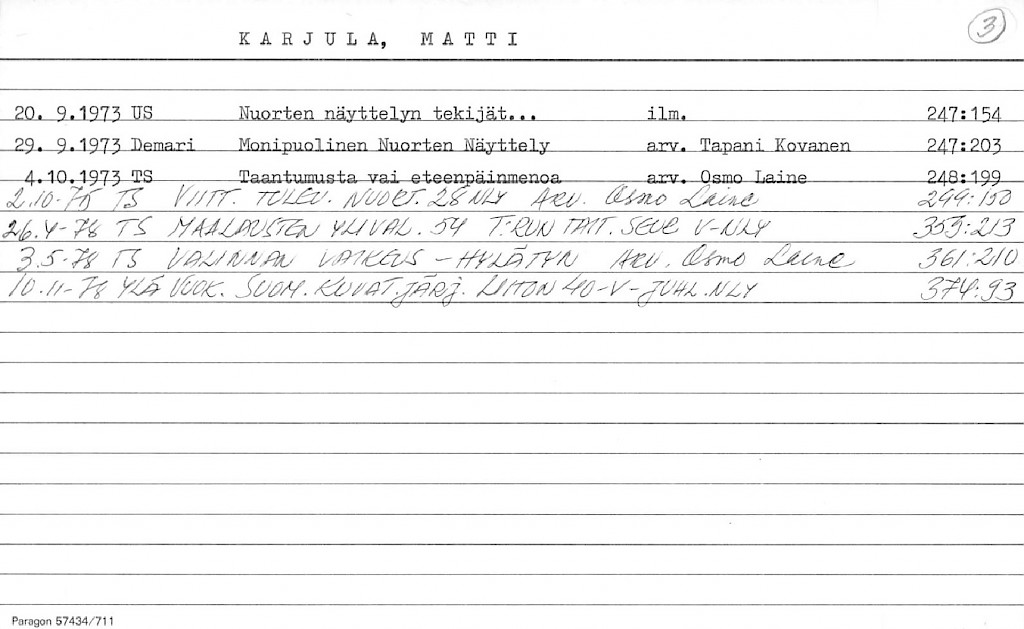 KARJULA, MATTI
3
20. 9.1973 US Nuorten näyttelyn tekijät... ilm. 247:154
29. 9.1973 Demari Monipuolinen Nuorten Näyttely arv. Tapani Kovanen 247:203
4.10.1973 TS Taantumusta vai eteenpäinmenoa arv. Osmo Laine 248:199
2.10-75 TS VIITT. TULEV. NUORT. 28 NLY ARV. Osmo Laine 299:150
26.4-78 TS MAALAUSTEN YLIVAL. 54 T:RUN TAIT. SEUR V-NLY 355:213
3.5-78 TS VALINNAN VAIKEUS - HYLÄTYN ARV. Osmo Laine 361:210
10.11-78 YLÄ VUOK. SUOM. KUVAT.JÄRJ. LIITON 40-V-JUHL.NLY 374:93
Paragon 57434/711